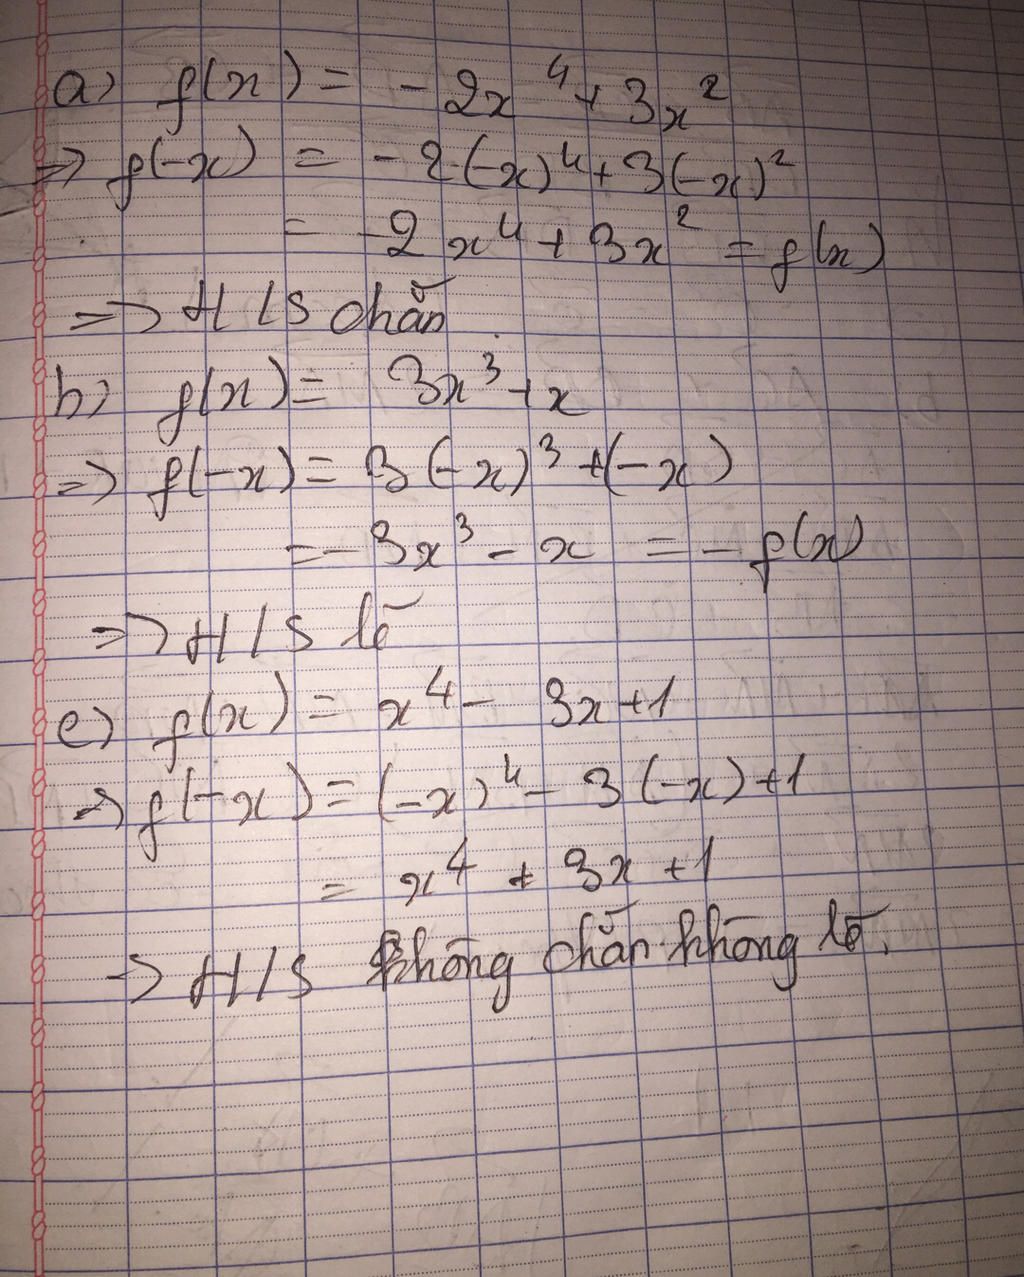 a) f(x) = -2x⁴ + 3x²
=> f(-x) = -2(-x)⁴ + 3(-x)²
= -2x⁴ + 3x² = f(x)
=> H/S chẵn
b) f(x) = 3x³ + x
=> f(-x) = 3(-x)³ + (-x)
= -3x³ - x = -f(x)
=> H/S lẽ
c) f(x) = x⁴ - 3x + 1
=> f(-x) = (-x)⁴ - 3(-x) + 1
= x⁴ + 3x + 1
-> H/S không chẵn không lẽ.